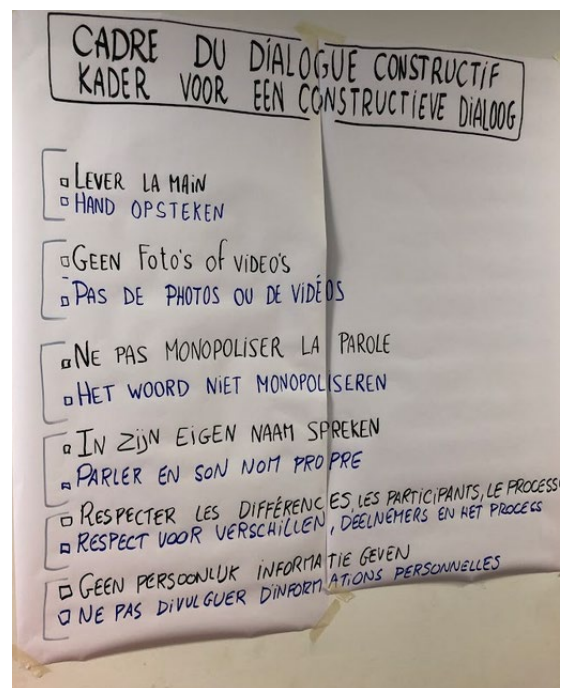 CADRE DU DIALOGUE CONSTRUCTIF
KADER VOOR EEN CONSTRUCTIEVE DIALOOG
LEVER LA MAIN
HAND OPSTEKEN
GEEN FOTO'S OF VIDEO'S
PAS DE PHOTOS OU DE VIDÉOS
NE PAS MONOPOLISER LA PAROLE
HET WOORD NIET MONOPOLISEREN
IN ZIJN EIGEN NAAM SPREKEN
PARLER EN SON NOM PROPRE
RESPECTER LES DIFFÉRENCES, LES PARTICIPANTS, LE PROCESS
RESPECT VOOR VERSCHILLEN, DEELNEMERS EN HET PROCESS
GEEN PERSOONLIJK INFORMATIE GEVEN
NE PAS DIVULGUER D'INFORMATIONS PERSONNELLES